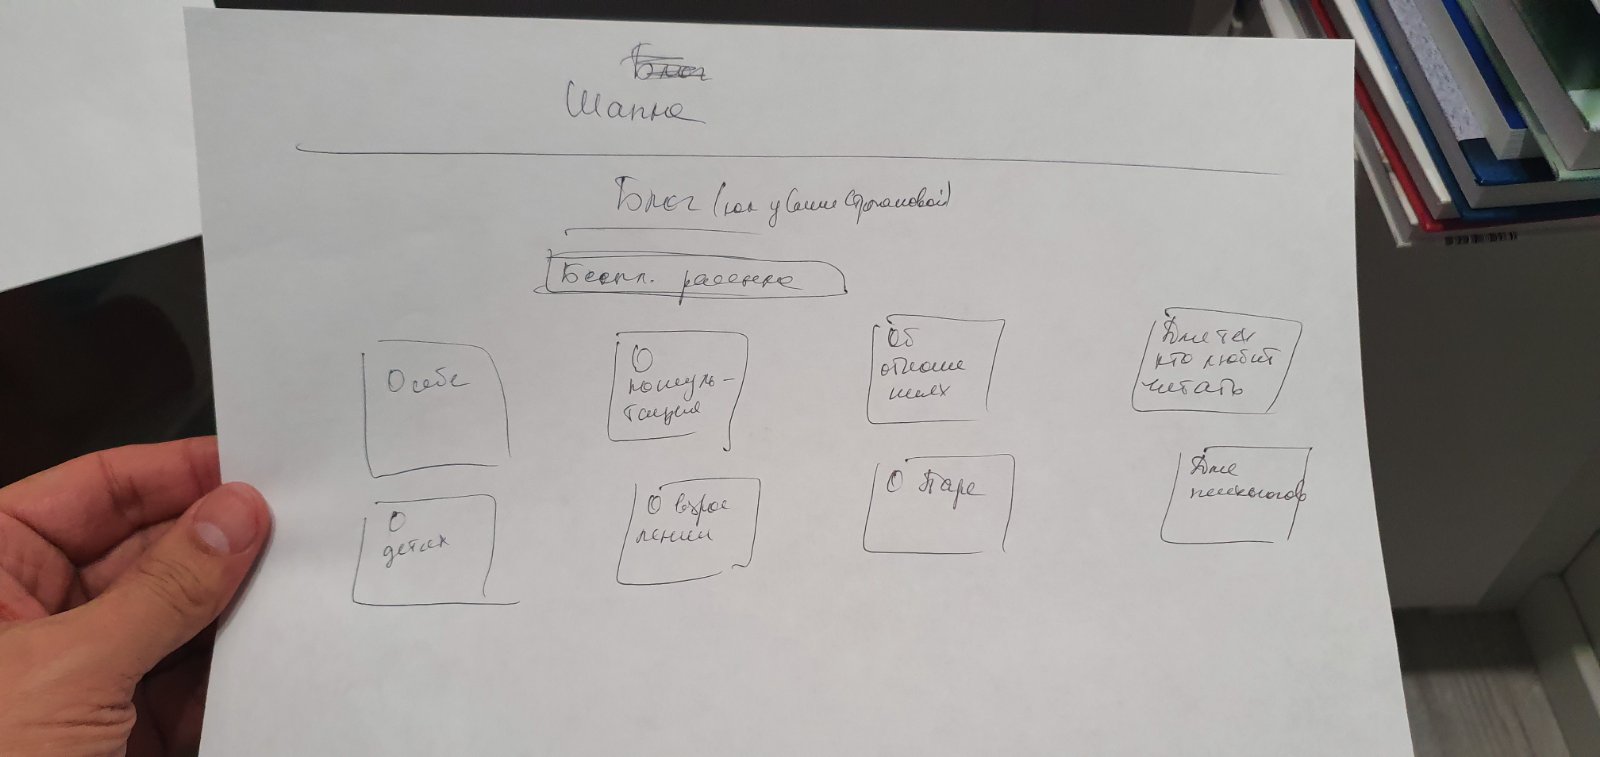 Блог
Шапка
Блог (как у Саши Степановой)
Беспл. рассылка
О себе
О
консуль-
тациях
Об
отноше
ниях
Для тех
кто любит
читать
О
детях
О взрос
лении
О Паре
Для
психологов